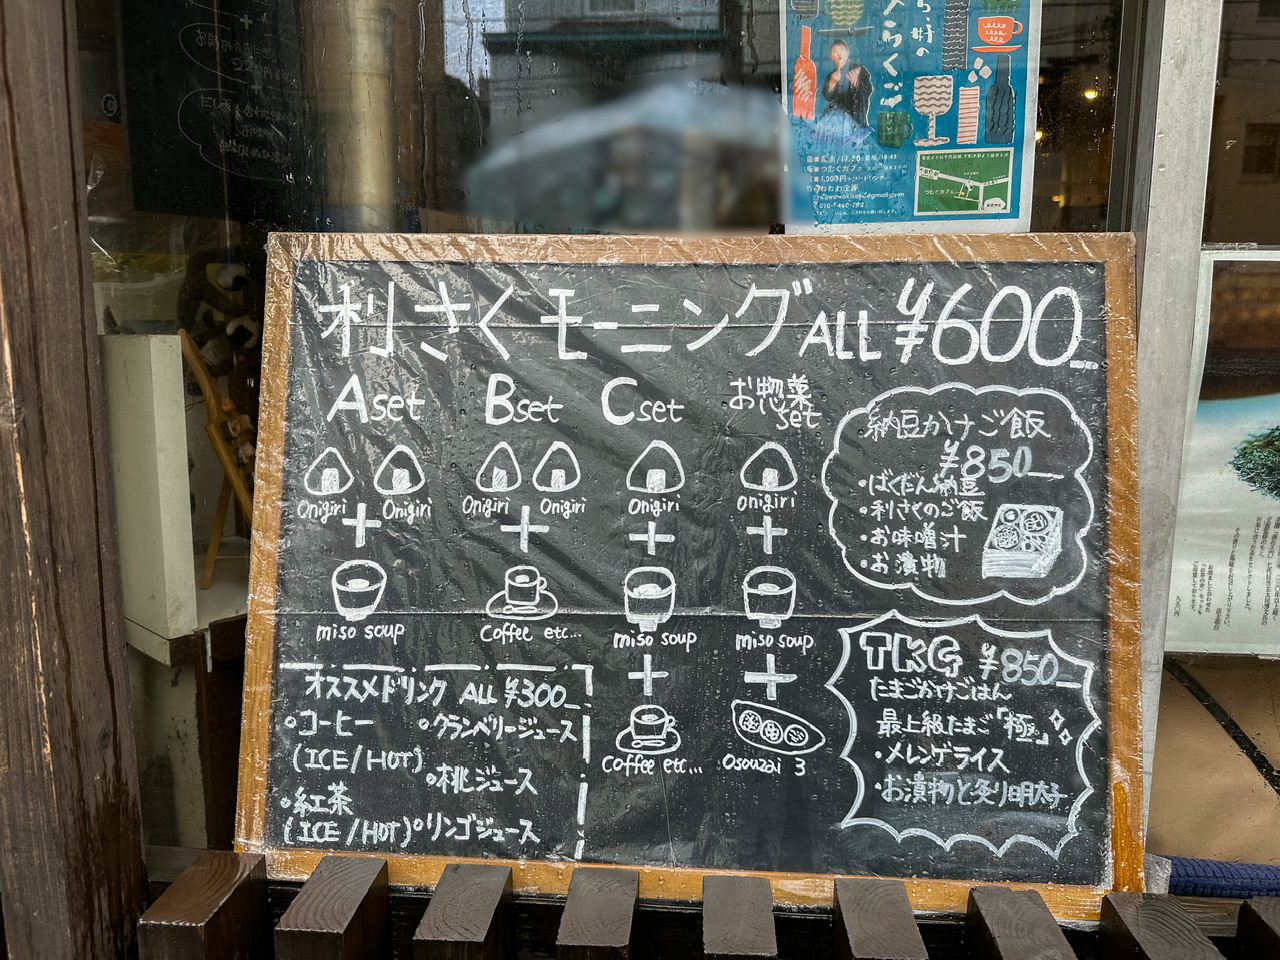 利さくモーニング ALL ¥600_
A set
Onigiri Onigiri
+
miso soup
B set
Onigiri Onigiri
+
Coffee etc...
C set
Onigiri
+
miso soup
+
Coffee etc...
お惣菜 set
Onigiri
+
miso soup
+
Osouzai 3
納豆かけご飯
¥850_
・ばくだん納豆
・利さくのご飯
・お味噌汁
・お漬物
TKG ¥850_
たまごかけごはん
最上級たまご「極」
・メレンゲライス
・お漬物と炙り明太子
オススメドリンク ALL ¥300_
・コーヒー
(ICE/HOT)
・紅茶
(ICE/HOT)
・クランベリージュース
・桃ジュース
・リンゴジュース